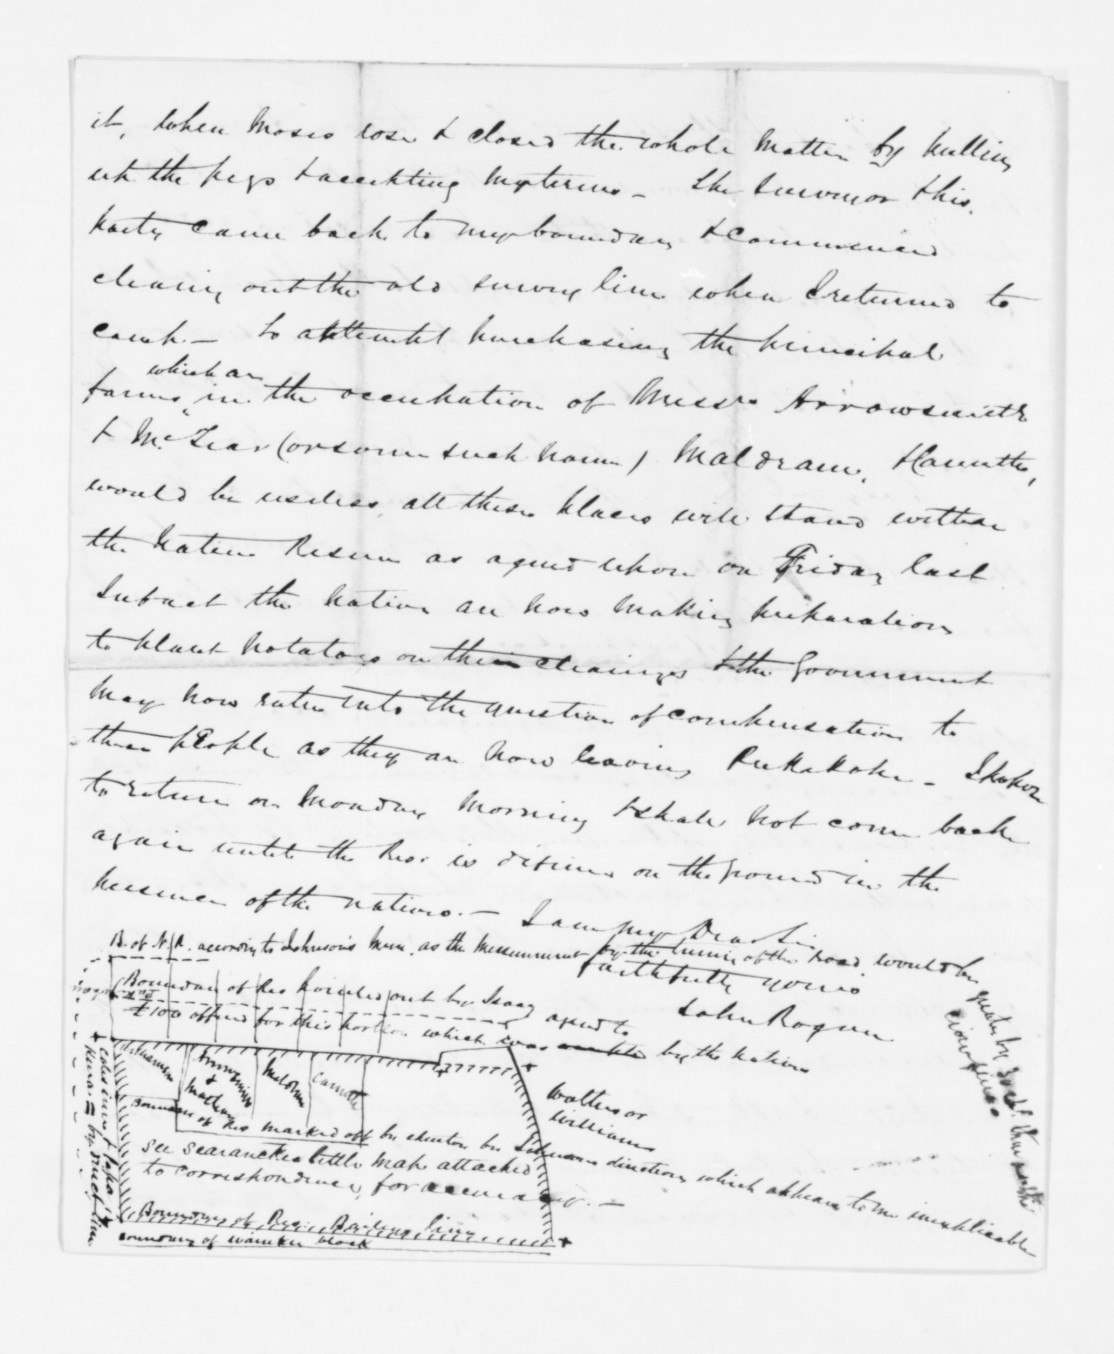 it, when Moses rose & closed the whole matter by pulling
up the pegs & accepting my terms – The Surveyor & his
party came back to my boundary & commenced
clearing out the old survey line when I returned to
camp. – To attempt purchasing the principal
farms which are in the occupation of Messrs Arrowsmith
& Mc (or some such name) Maldram,
would be useless, all these places will stand within
the Native Reserve as agreed upon on Friday last
In fact the natives are now making preparations
to plant potatoes on their clearings & the Government
may now enter into the question of compensation to
these people as they are now leaving Pukekohe – I hope
to return on Monday morning & shall not come back
again until the Res. is defined on the ground in the
presence of the natives. –
I am My Dear Sir
faithfully yours
John Rogan
B. of N.R. according to Johnson's as the measurement by the turning of the road would be
Boundary of Res pointed out by Isaac agreed to
£100 offered for this portion which was by the natives
&
Maldrum
Walters or
Williams
Boundary of Res marked off by by Johnsons direction which appears to me inexplicable
see little map attached
to correspondence for accuracy. –
Boundary of Res. line
Boundary of block
by direct line